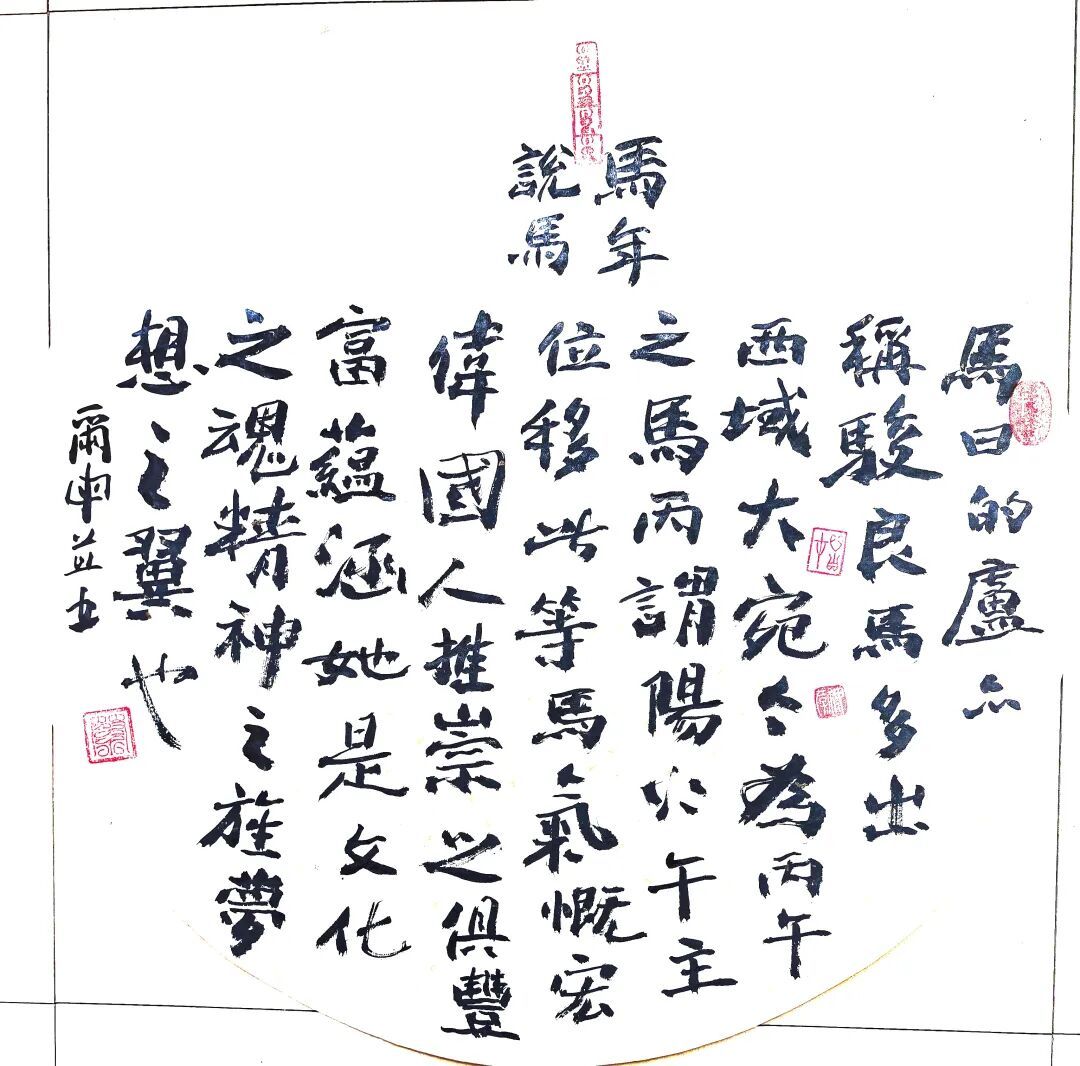 馬年
說馬
馬曰的廬亦
稱駿良馬多出
西域大宛今為丙午
之馬丙謂陽火午主
位移此等馬氣慨宏
偉國人推崇之俱豐
富蘊涵她是文化
之魂精神之旌夢
想之翼也
爾